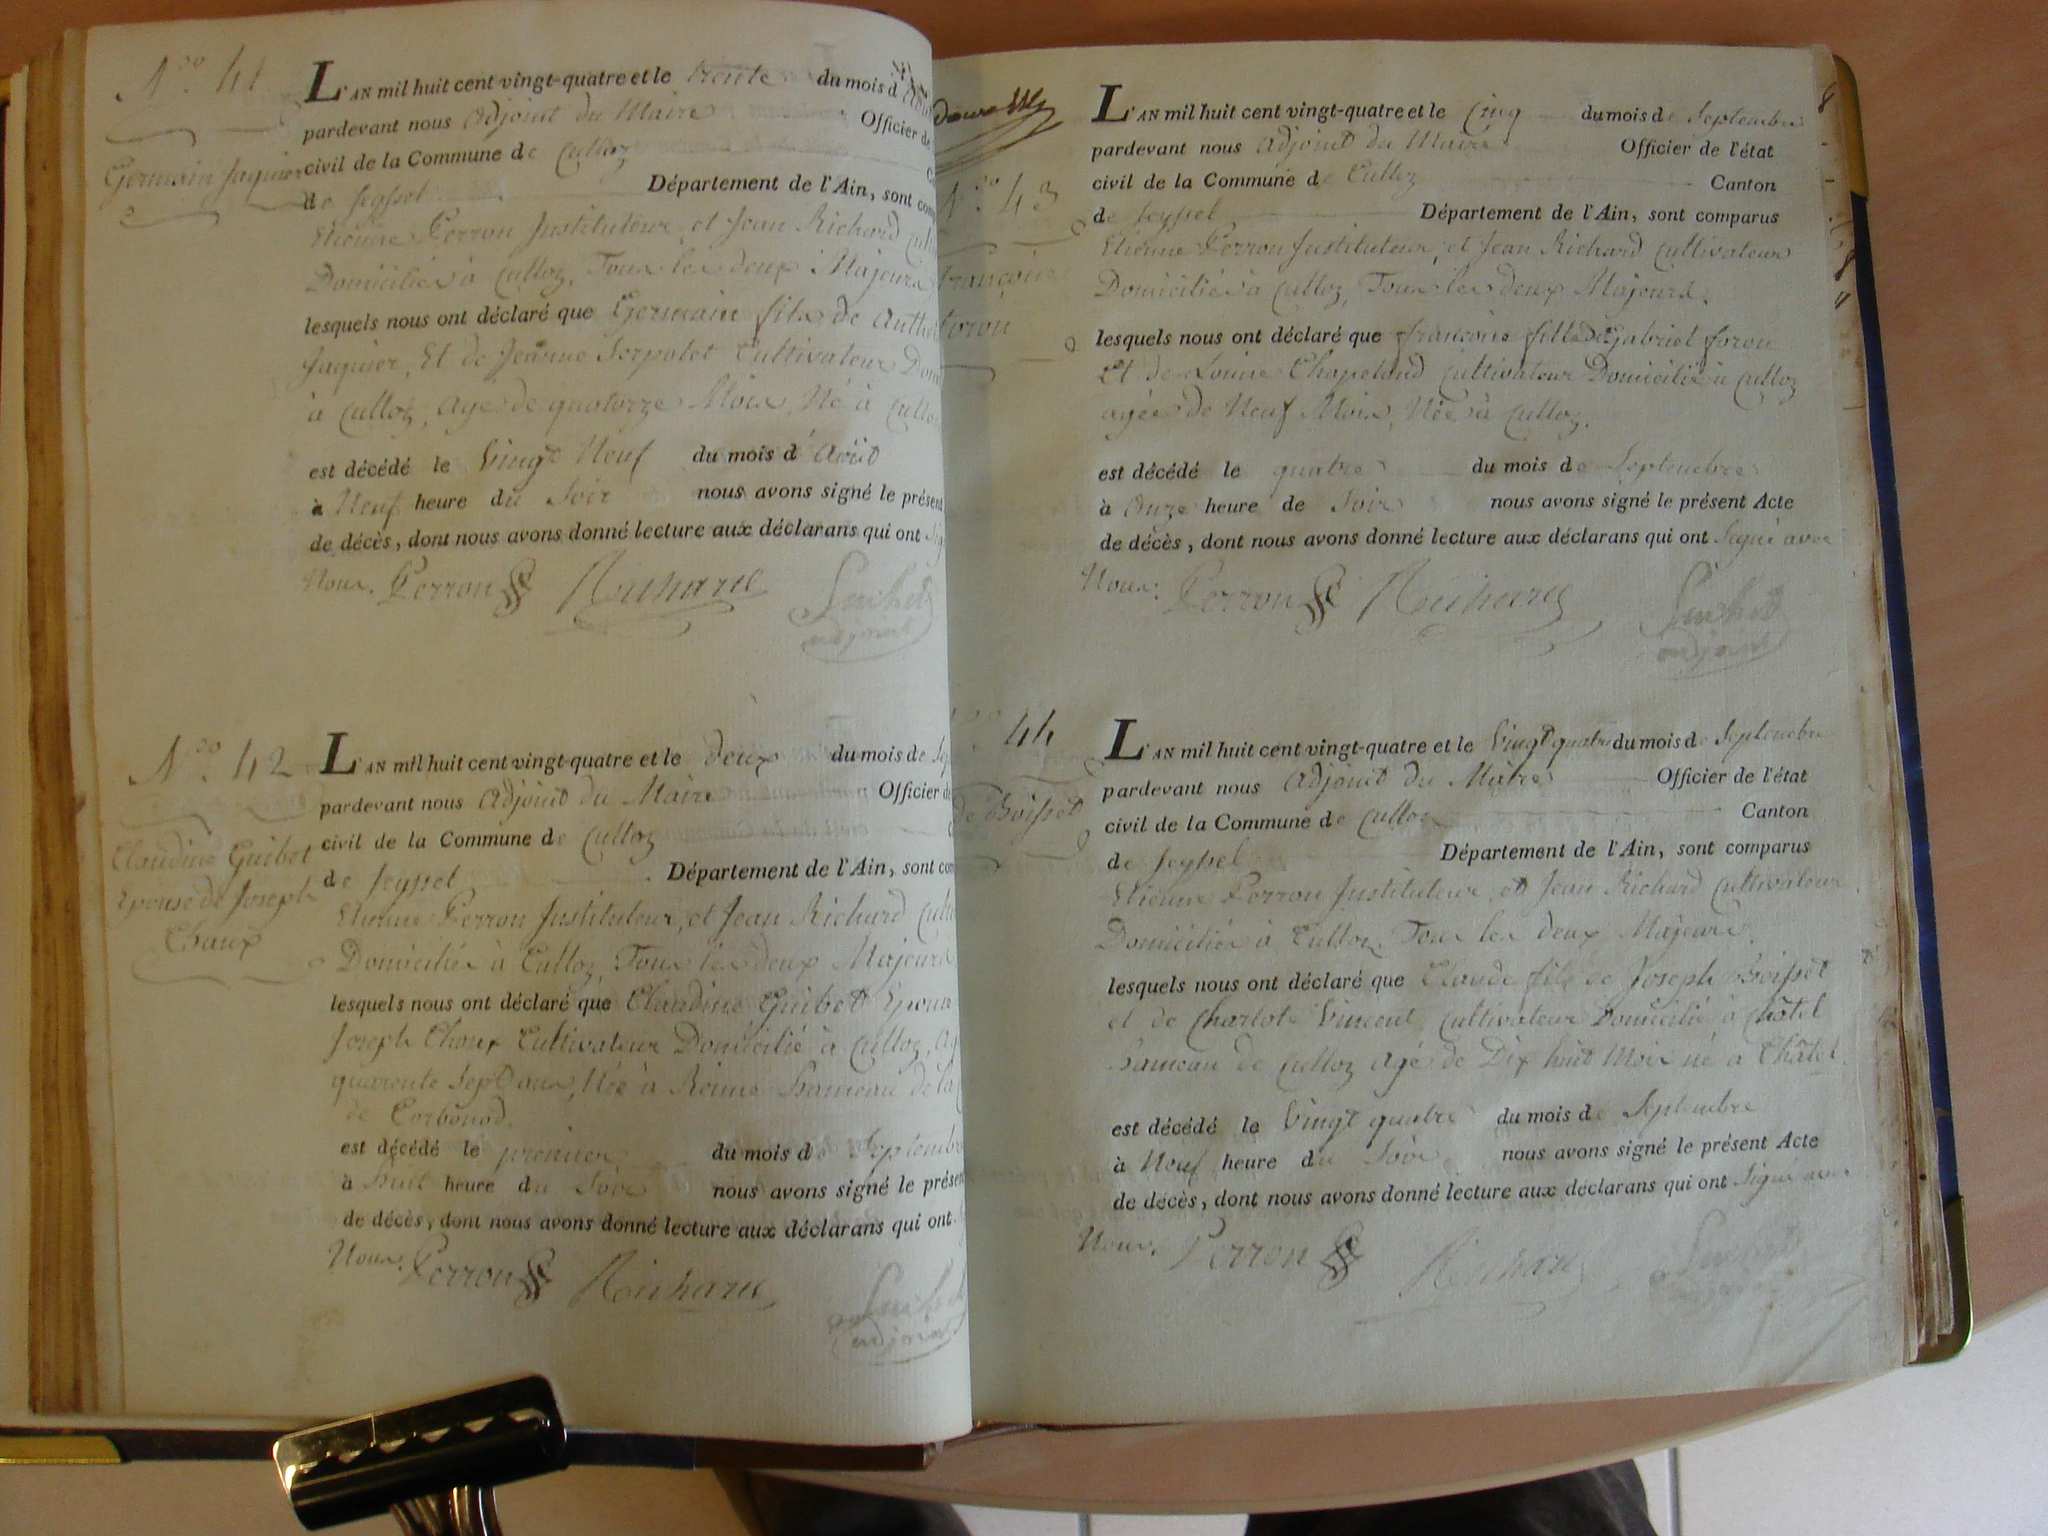 N.º 41
Germain Jaquier
L'AN mil huit cent vingt-quatre et le trente du mois d'
pardevant nous Adjoint du Maire Officier de
civil de la Commune de Culloz
de Seyssel Département de l'Ain, sont com
Etienne Perron Instituteur, et Jean Richard cult
Domiciliés à Culloz, Tous les deux Majeurs
lesquels nous ont déclaré que Germain fils de Anth
Jaquier, Et de Jeanne Serpolet Cultivateur Dom
à Culloz, agé de quatorze Mois, Né à Cullo
est décédé le Vingt Neuf du mois d'Août
à Neuf heure du Soir nous avons signé le présent
de décès, dont nous avons donné lecture aux déclarans qui ont
Nous. Perron Richard Suchet
adjoint
N.º 42
Claudine Guibet
Epouse de Joseph
Chaux
L'AN mil huit cent vingt-quatre et le deux du mois de Sep
pardevant nous Adjoint du Maire Officier de
civil de la Commune de Culloz
de Seyssel Département de l'Ain, sont com
Etienne Perron Instituteur, et Jean Richard Cult
Domiciliés à Culloz, Tous les deux Majeurs
lesquels nous ont déclaré que Claudine Guibet Epouse
Joseph Chaux Cultivateur Domicilié à Culloz, Ag
quarente Sept ans, Née à Reinne hameau de la
de Corbonod.
est décédé le premier du mois de Septembre
à huit heure du Soir nous avons signé le présen
de décès, dont nous avons donné lecture aux déclarans qui ont
Nous. Perron Richard Suchet
adjoint
N.º 43
françoise
foron
L'AN mil huit cent vingt-quatre et le Cinq du mois de Septembre
pardevant nous Adjoint du Maire Officier de l'état
civil de la Commune de Culloz Canton
de Seyssel Département de l'Ain, sont comparus
Etienne Perron Instituteur, et Jean Richard Cultivateur
Domiciliés à Culloz, Tous les deux Majeurs.
lesquels nous ont déclaré que françoise fille de Gabriel foron
Et de Louise Chapeland Cultivateur Domicilié à Culloz
agée de Neuf Mois, Née à Culloz.
est décédé le quatre du mois de Septembre
à Onze heure de Soir nous avons signé le présent Acte
de décès, dont nous avons donné lecture aux déclarans qui ont Signé avec
Nous. Perron Richard Suchet
adjoint
44
de Boisset
L'AN mil huit cent vingt-quatre et le Vingt quatre du mois de Septembre
pardevant nous Adjoint du Maire Officier de l'état
civil de la Commune de Culloz Canton
de Seyssel Département de l'Ain, sont comparus
Etienne Perron Instituteur, et Jean Richard Cultivateur
Domiciliés à Culloz, Tous les deux Majeurs.
lesquels nous ont déclaré que Claude fils de Joseph Boisset
et de Charlote Vincent Cultivateur Domicilié à Châtel
hameau de Culloz Agé de Dix huit Mois né à Châtel.
est décédé le Vingt quatre du mois de Septembre
à Neuf heure du Soir nous avons signé le présent Acte
de décès, dont nous avons donné lecture aux déclarans qui ont Signé avec
Nous. Perron Richard Suchet